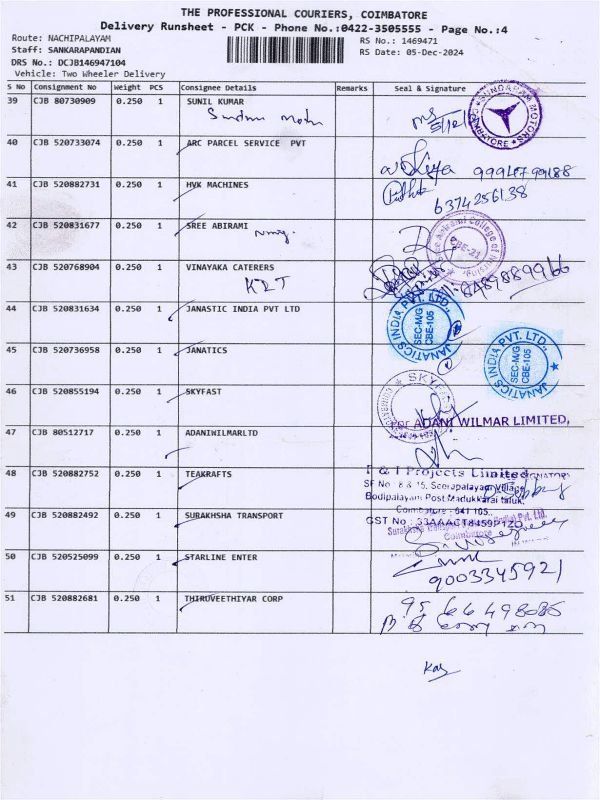 THE PROFESSIONAL COURIERS, COIMBATORE
Delivery Runsheet - PCK - Phone No.:0422-3505555 - Page No.:4
Route: NACHIPALAYAM
RS No.: 1469471
Staff: SANKARAPANDIAN
RS Date: 05-Dec-2024
DRS No.: DCJB146947104
Vehicle: Two Wheeler Delivery
S No Consignment No Weight PCS Consignee Details Remarks Seal & Signature
39 CJB 80730909 0.250 1 SUNIL KUMAR
SUNDARAM MOTORS
40 CJB 520733074 0.250 1 ARC PARCEL SERVICE PVT
41 CJB 520882731 0.250 1 HVK MACHINES
6374256138
42 CJB 520831677 0.250 1 SREE ABIRAMI
CBE-21
43 CJB 520768904 0.250 1 VINAYAKA CATERERS
8489889966
44 CJB 520831634 0.250 1 JANASTIC INDIA PVT LTD
JANATICS INDIA PVT. LTD.,
SEC-M/G
CBE-105
45 CJB 520736958 0.250 1 JANATICS
JANATICS INDIA PVT. LTD.,
SEC-M/G
CBE-105
46 CJB 520855194 0.250 1 SKYFAST
SKYFAST
For ADANI WILMAR LIMITED,
47 CJB 80512717 0.250 1 ADANIWILMARLTD
48 CJB 520882752 0.250 1 TEAKRAFTS
Projects Limited
SF No : 8 & 15, Seerapalayam Village
Bodipalayam Post Madukkarai taluk,
Coimbatore - 641 105.
GST No : 33AAACT8459P1ZO
49 CJB 520882492 0.250 1 SURAKHSHA TRANSPORT
Coimbatore
50 CJB 520525099 0.250 1 STARLINE ENTER
9003345921
51 CJB 520882681 0.250 1 THIRUVEETHIYAR CORP